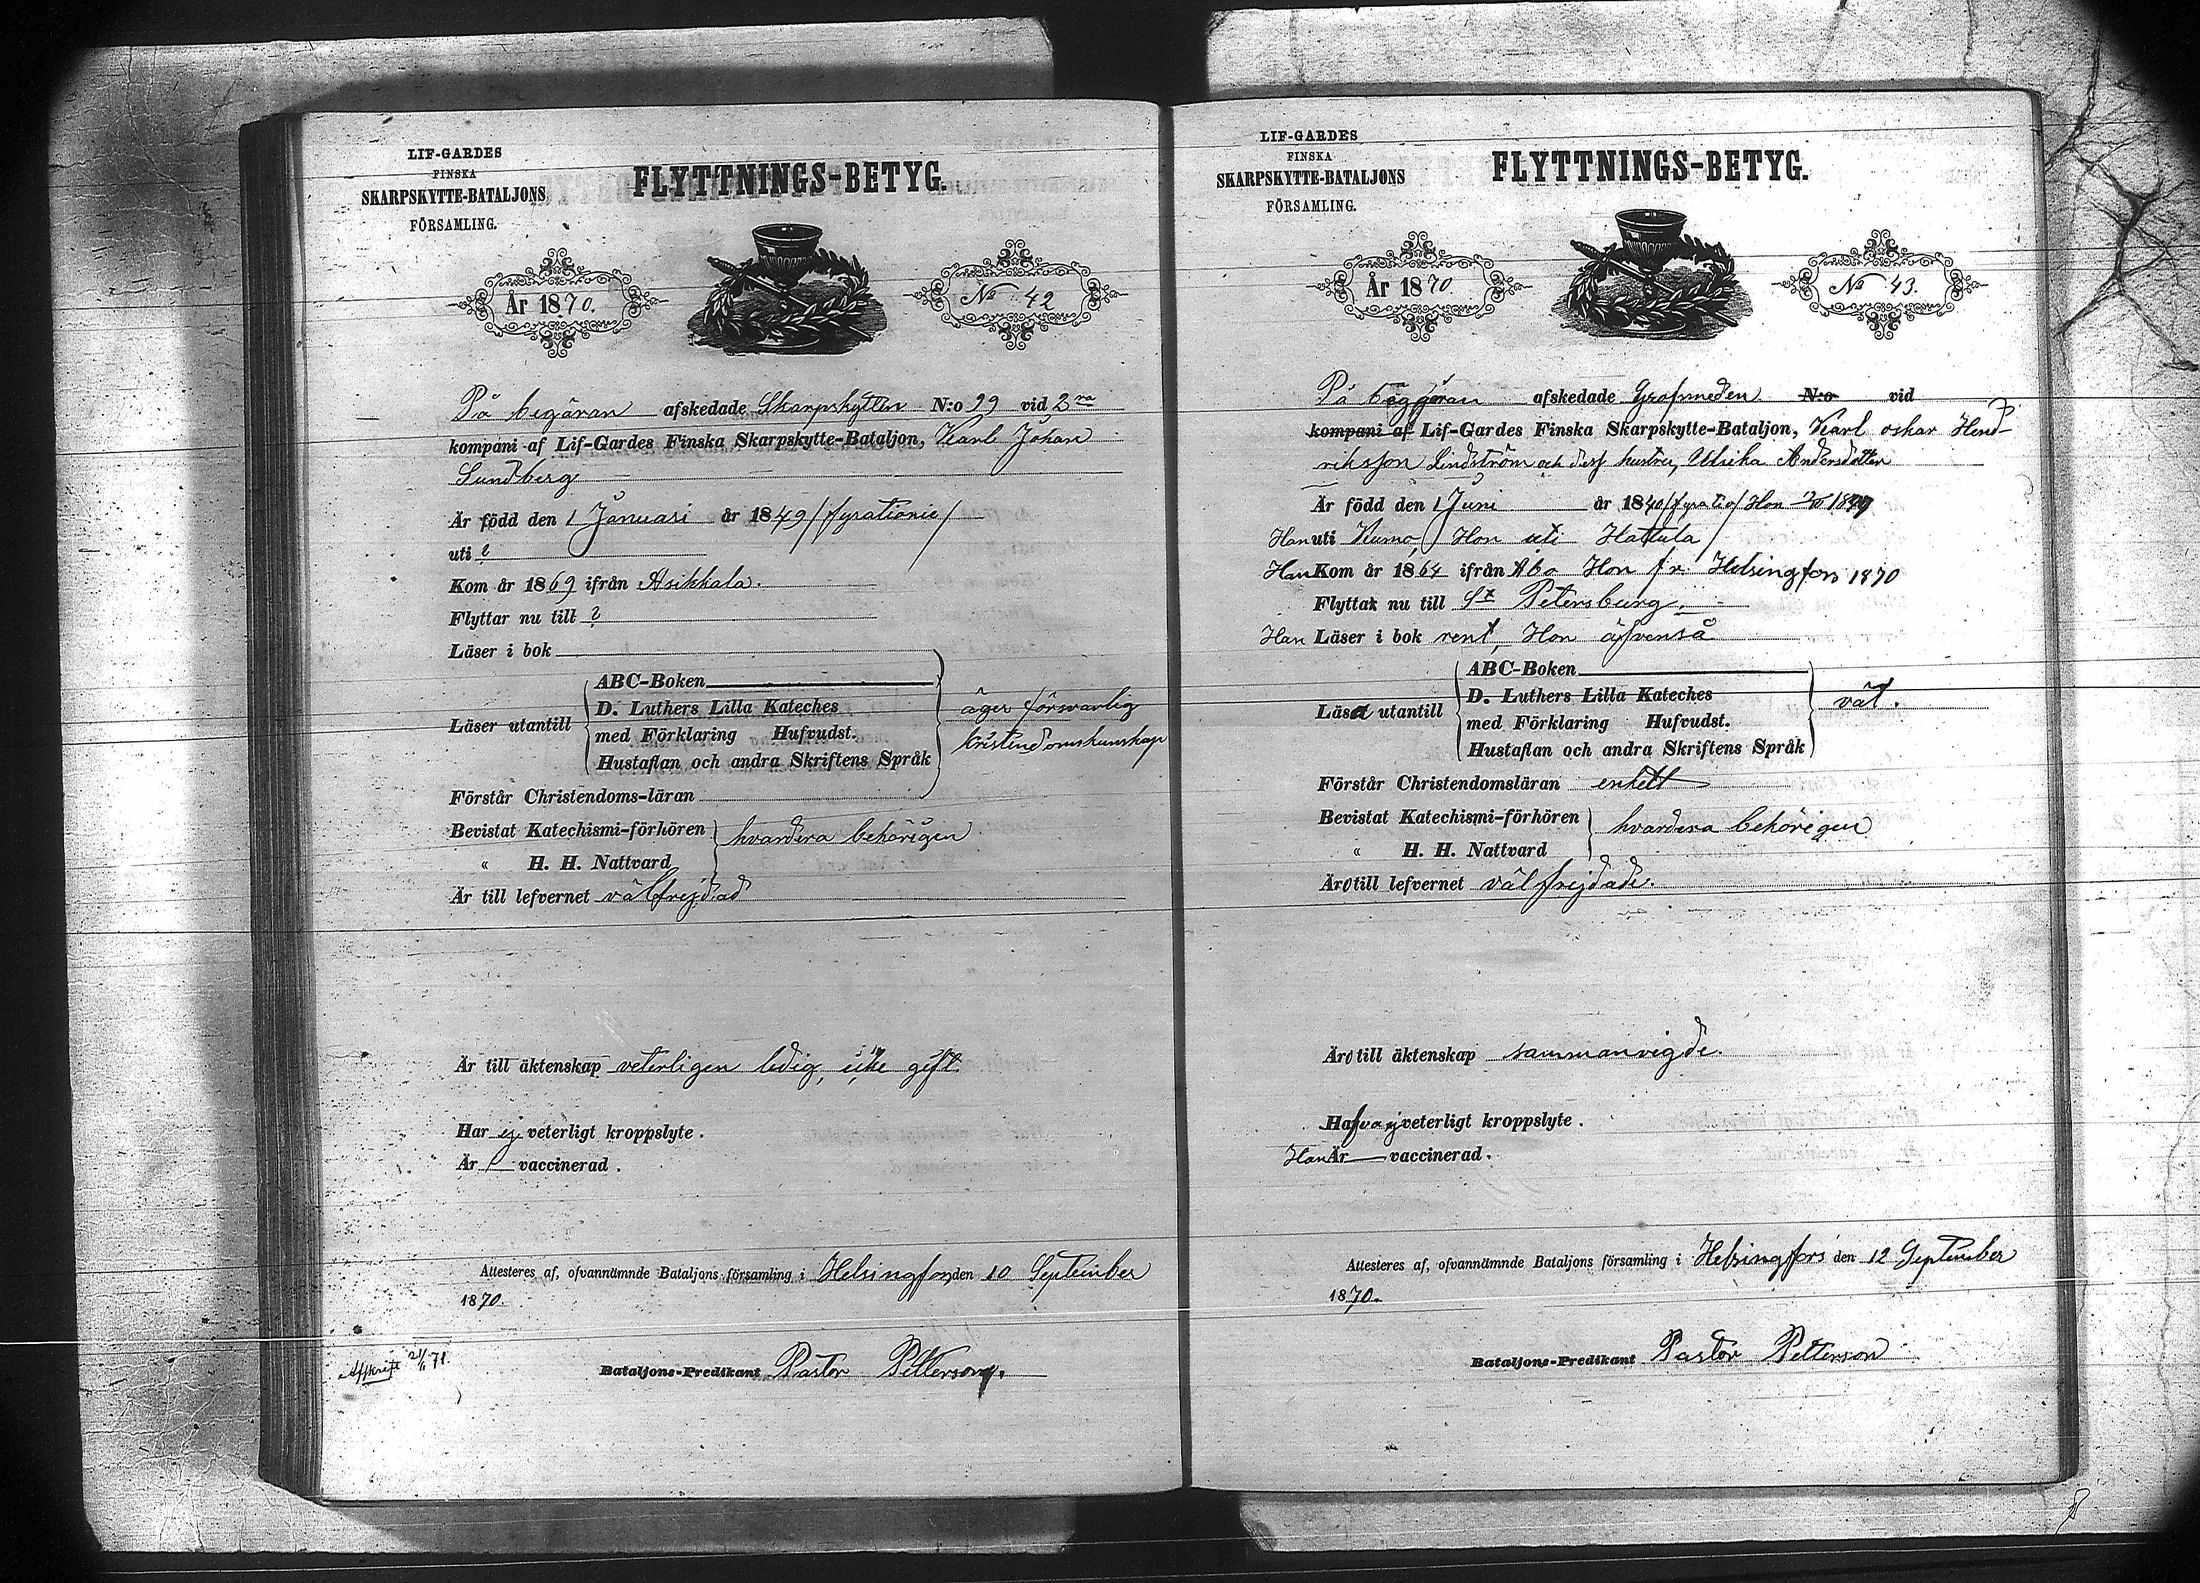 LIF-GARDES
FINSKA
SKARPSKYTTE-BATALJONS
FÖRSAMLING.
FLYTTNINGS-BETYG.
År 1870.
No 42
På begäran afskedade Skarpskytten N:o 99 vid 2ra
kompani af Lif-Gardes Finska Skarpskytte-Bataljon, Karl Johan
Sundberg
Är född den 1 Januari år 1849 /fyrationie/
uti ?
Kom år 1869 ifrån Asikkala.
Flyttar nu till ?
Läser i bok
ABC-Boken
D. Luthers Lilla Kateches
Läser utantill
med Förklaring Hufvudst.
Hustaflan och andra Skriftens Språk
äger försvarlig
kristendomskunskap
Förstår Christendoms-läran
Bevistat Katechismi-förhören
hvardera behörigen
" H. H. Nattvard
Är till lefvernet välfrejdad
Är till äktenskap veterligen ledig, icke gift.
Har ej veterligt kroppslyte.
Är vaccinerad.
Attesteres af, ofvannämnde Bataljons församling i Helsingfors den 10 September
1870.
Afskrift 71.
Bataljons-Predikant Pastor Petterson.
LIF-GARDES
FINSKA
SKARPSKYTTE-BATALJONS
FÖRSAMLING.
FLYTTNINGS-BETYG.
År 1870
No 43.
På begäran afskedade Grofsmeden N:o vid
kompani af Lif-Gardes Finska Skarpskytte-Bataljon, Karl oskar Hend-
riksson Lindström och dess hustru, Ulrika Andersdotter
Är född den 1 Juni år 1840 /fyratio/ Hon
Han uti Kumo, Hon uti Hattula
Han Kom år 1864 ifrån Åbo Hon fr Helsingfors 1870
Flytta nu till St Petersburg.
Han Läser i bok rent, Hon äfvenså
ABC-Boken
D. Luthers Lilla Kateches
Läsa utantill
med Förklaring Hufvudst.
Hustaflan och andra Skriftens Språk
väl.
Förstår Christendomsläran enkelt
Bevistat Katechismi-förhören
hvardera behörigen
" H. H. Nattvard
Äro till lefvernet välfrejdade.
Äro till äktenskap sammanvigde.
Hafva ej veterligt kroppslyte.
Han Är vaccinerad.
Attesteres af, ofvannämnde Bataljons församling i Helsingfors den 12 September
1870.
Bataljons-Predikant Pastor Petterson